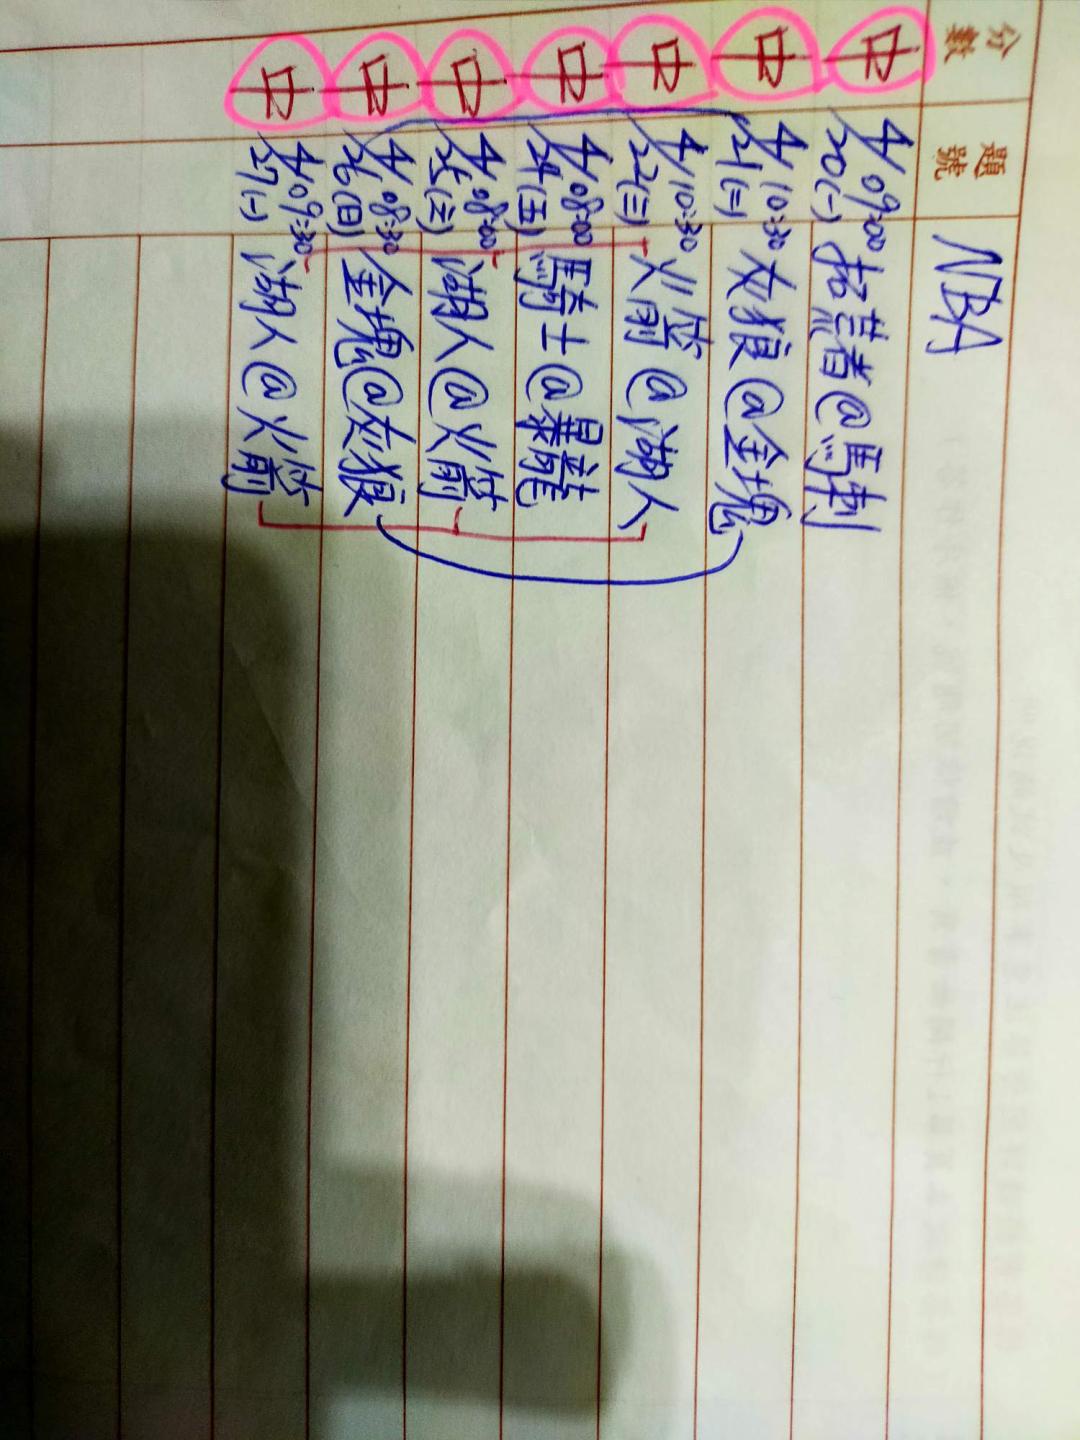 分數 題號
NBA
中 4/20(一) 09:00 拓荒者@馬刺
中 4/21(二) 10:30 灰狼@金塊
中 4/22(三) 10:30 火箭@湖人
中 4/24(五) 08:00 騎士@暴龍
中 4/25(六) 08:00 湖人@火箭
中 4/26(日) 08:30 金塊@灰狼
中 4/27(一) 09:30 湖人@火箭